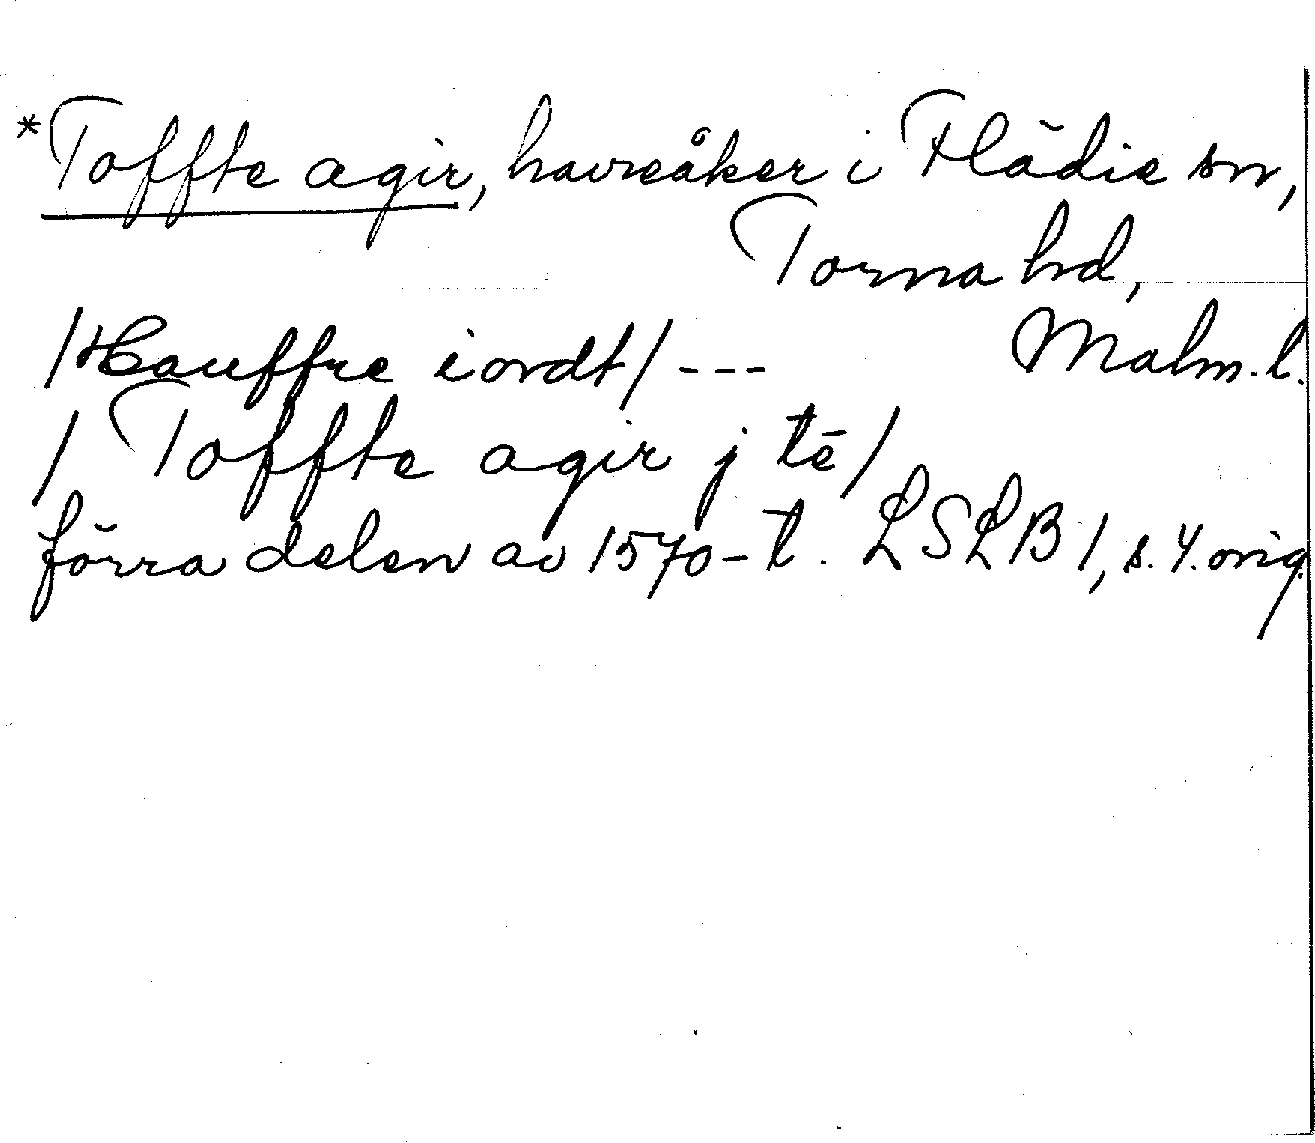 *Toffte agir, havreåker i Flädie sn,
Torna hd,
Malm. l.
/Hauffre iordt/ ---
/Toffte agir j tē/
förra delen av 1570-t. LSLB 1, s. 4. orig.